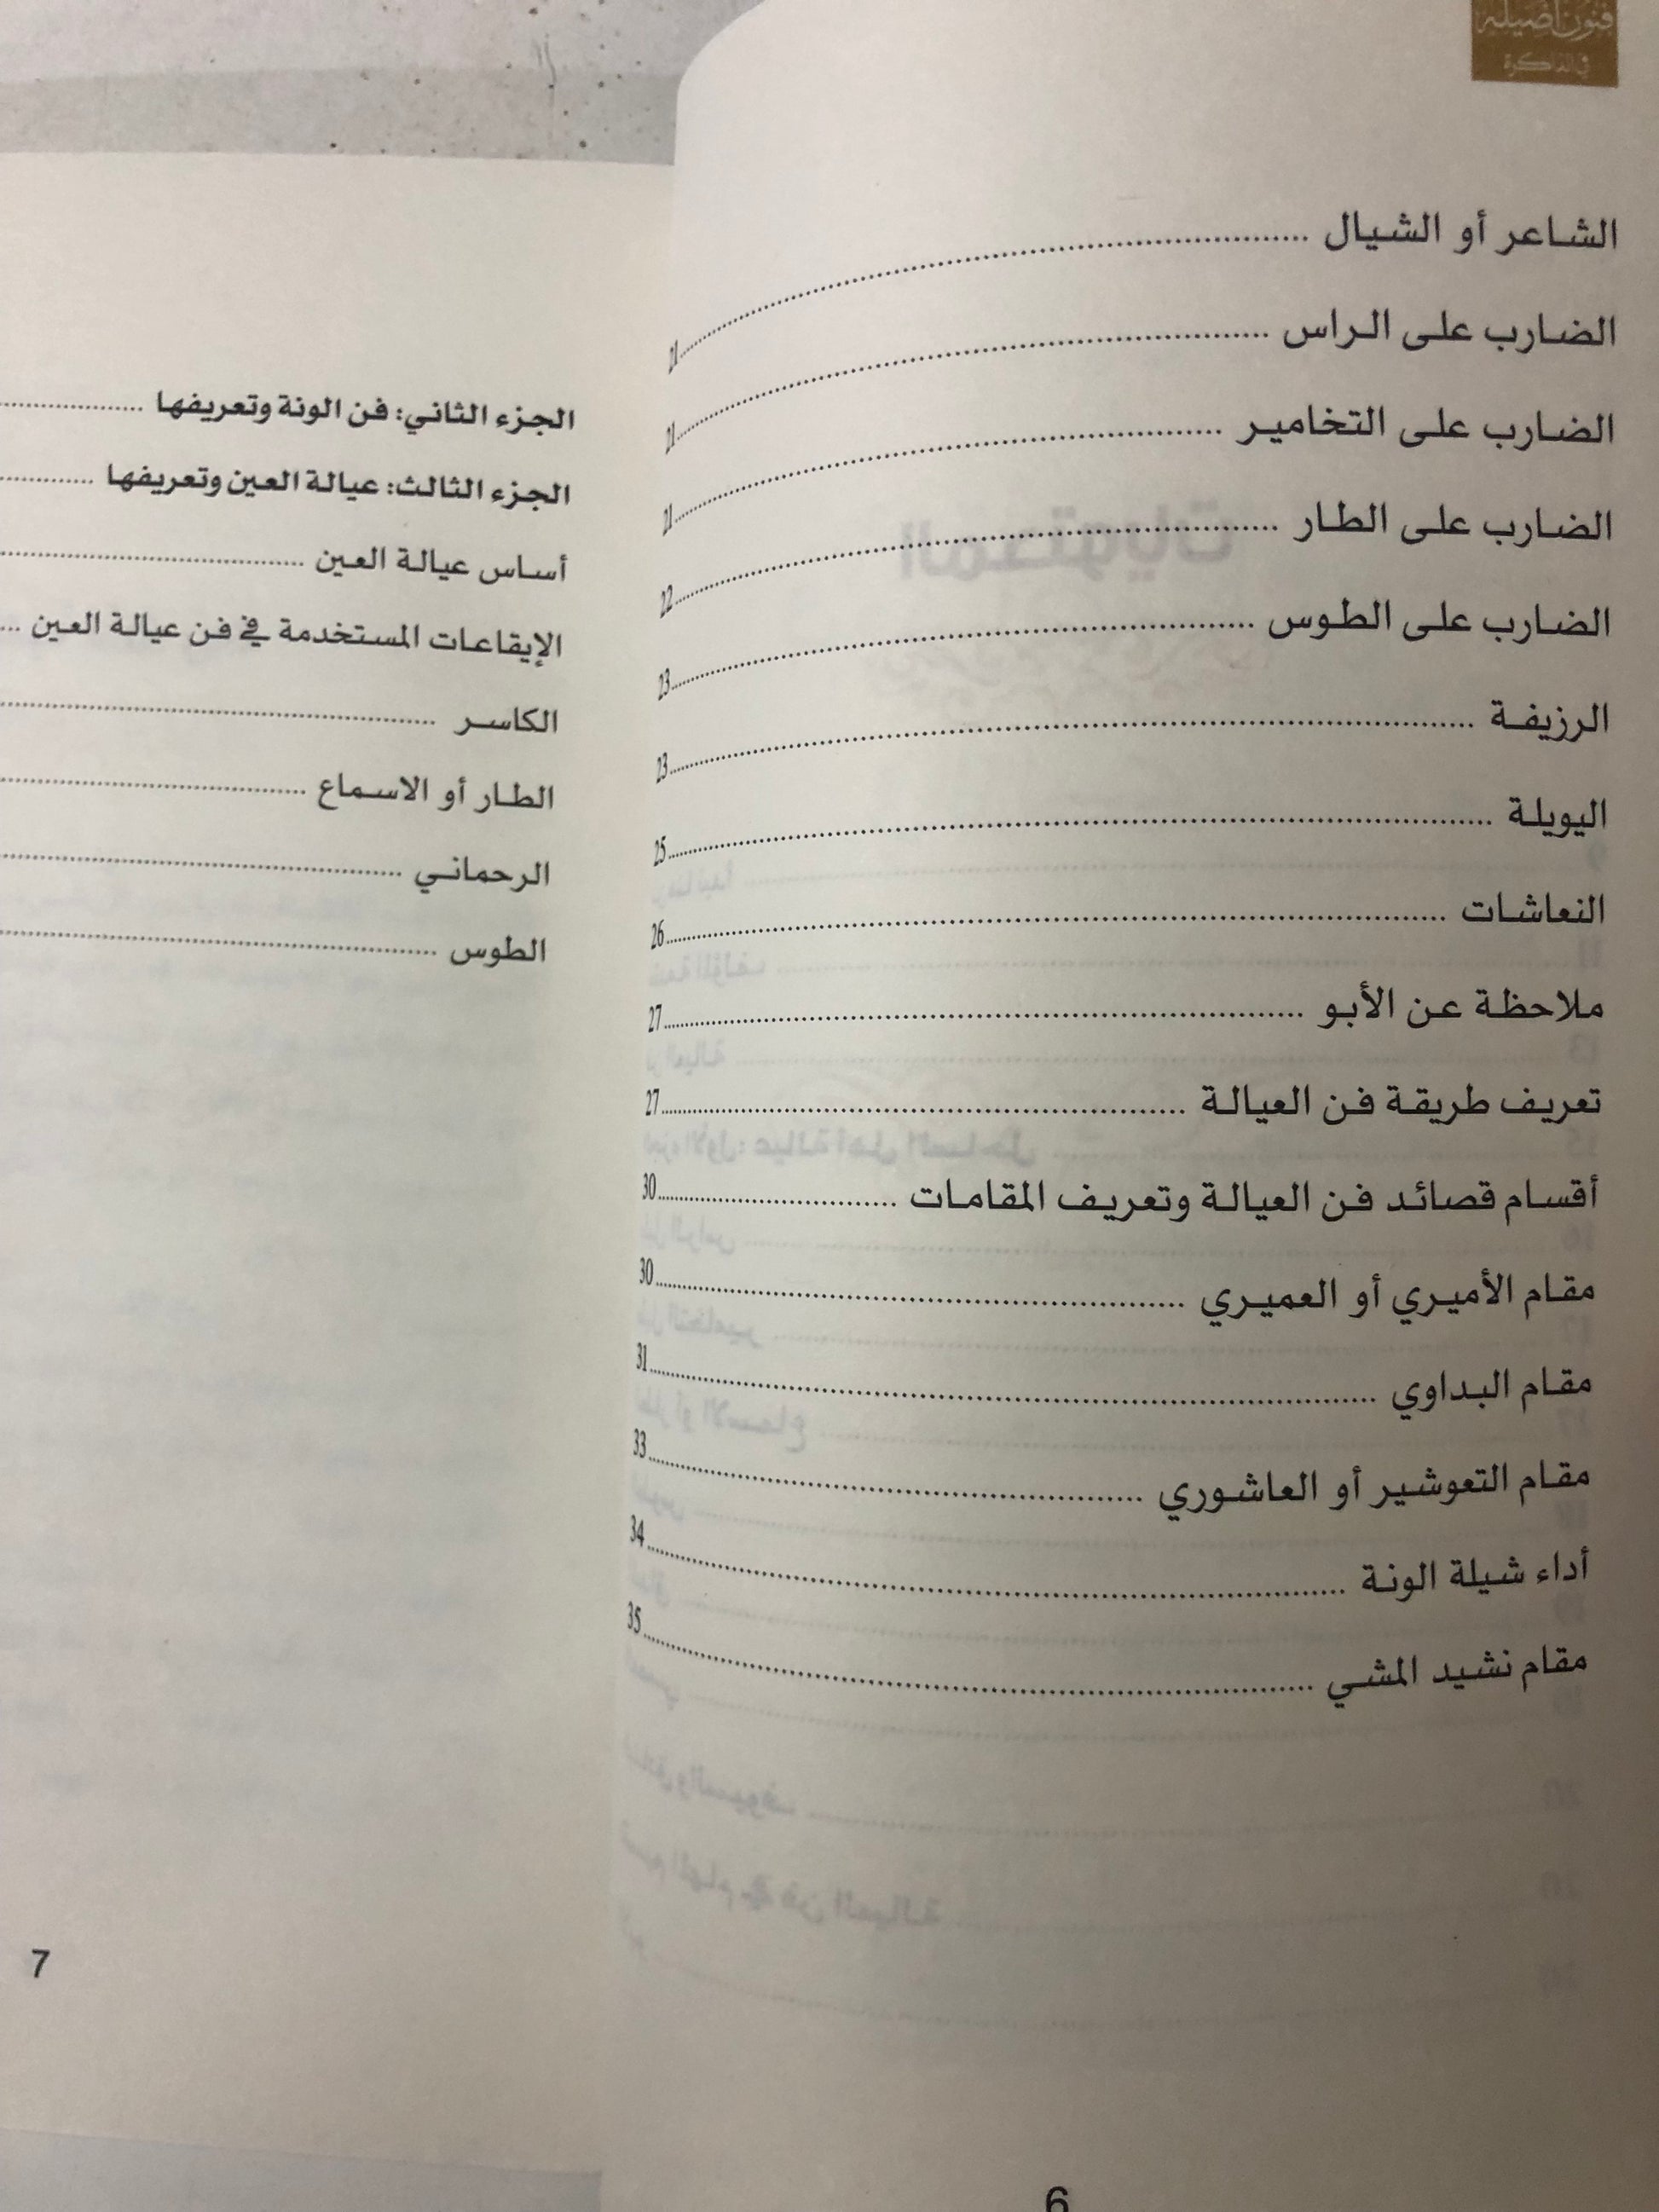 فنون أصيلة
في الذاكرة
الشاعر أو الشيال ........ 21
الضارب على الراس ........ 21
الضارب على التخامير ........ 21
الضارب على الطار ........ 22
الضارب على الطوس ........ 23
الرزيفة ........ 23
اليويلة ........ 25
النعاشات ........ 26
ملاحظة عن الأبو ........ 27
تعريف طريقة فن العيالة ........ 27
أقسام قصائد فن العيالة وتعريف المقامات ........ 30
مقام الأميري أو العميري ........ 30
مقام البداوي ........ 31
مقام التعوشير أو العاشوري ........ 33
أداء شيلة الونة ........ 34
مقام نشيد المشي ........ 35
6
الجزء الثاني: فن الونة وتعريفها ........
الجزء الثالث: عيالة العين وتعريفها ........
أساس عيالة العين ........
الإيقاعات المستخدمة في فن عيالة العين ...
الكاسر ........
الطار أو الاسماع ........
الرحماني ........
الطوس ........
7